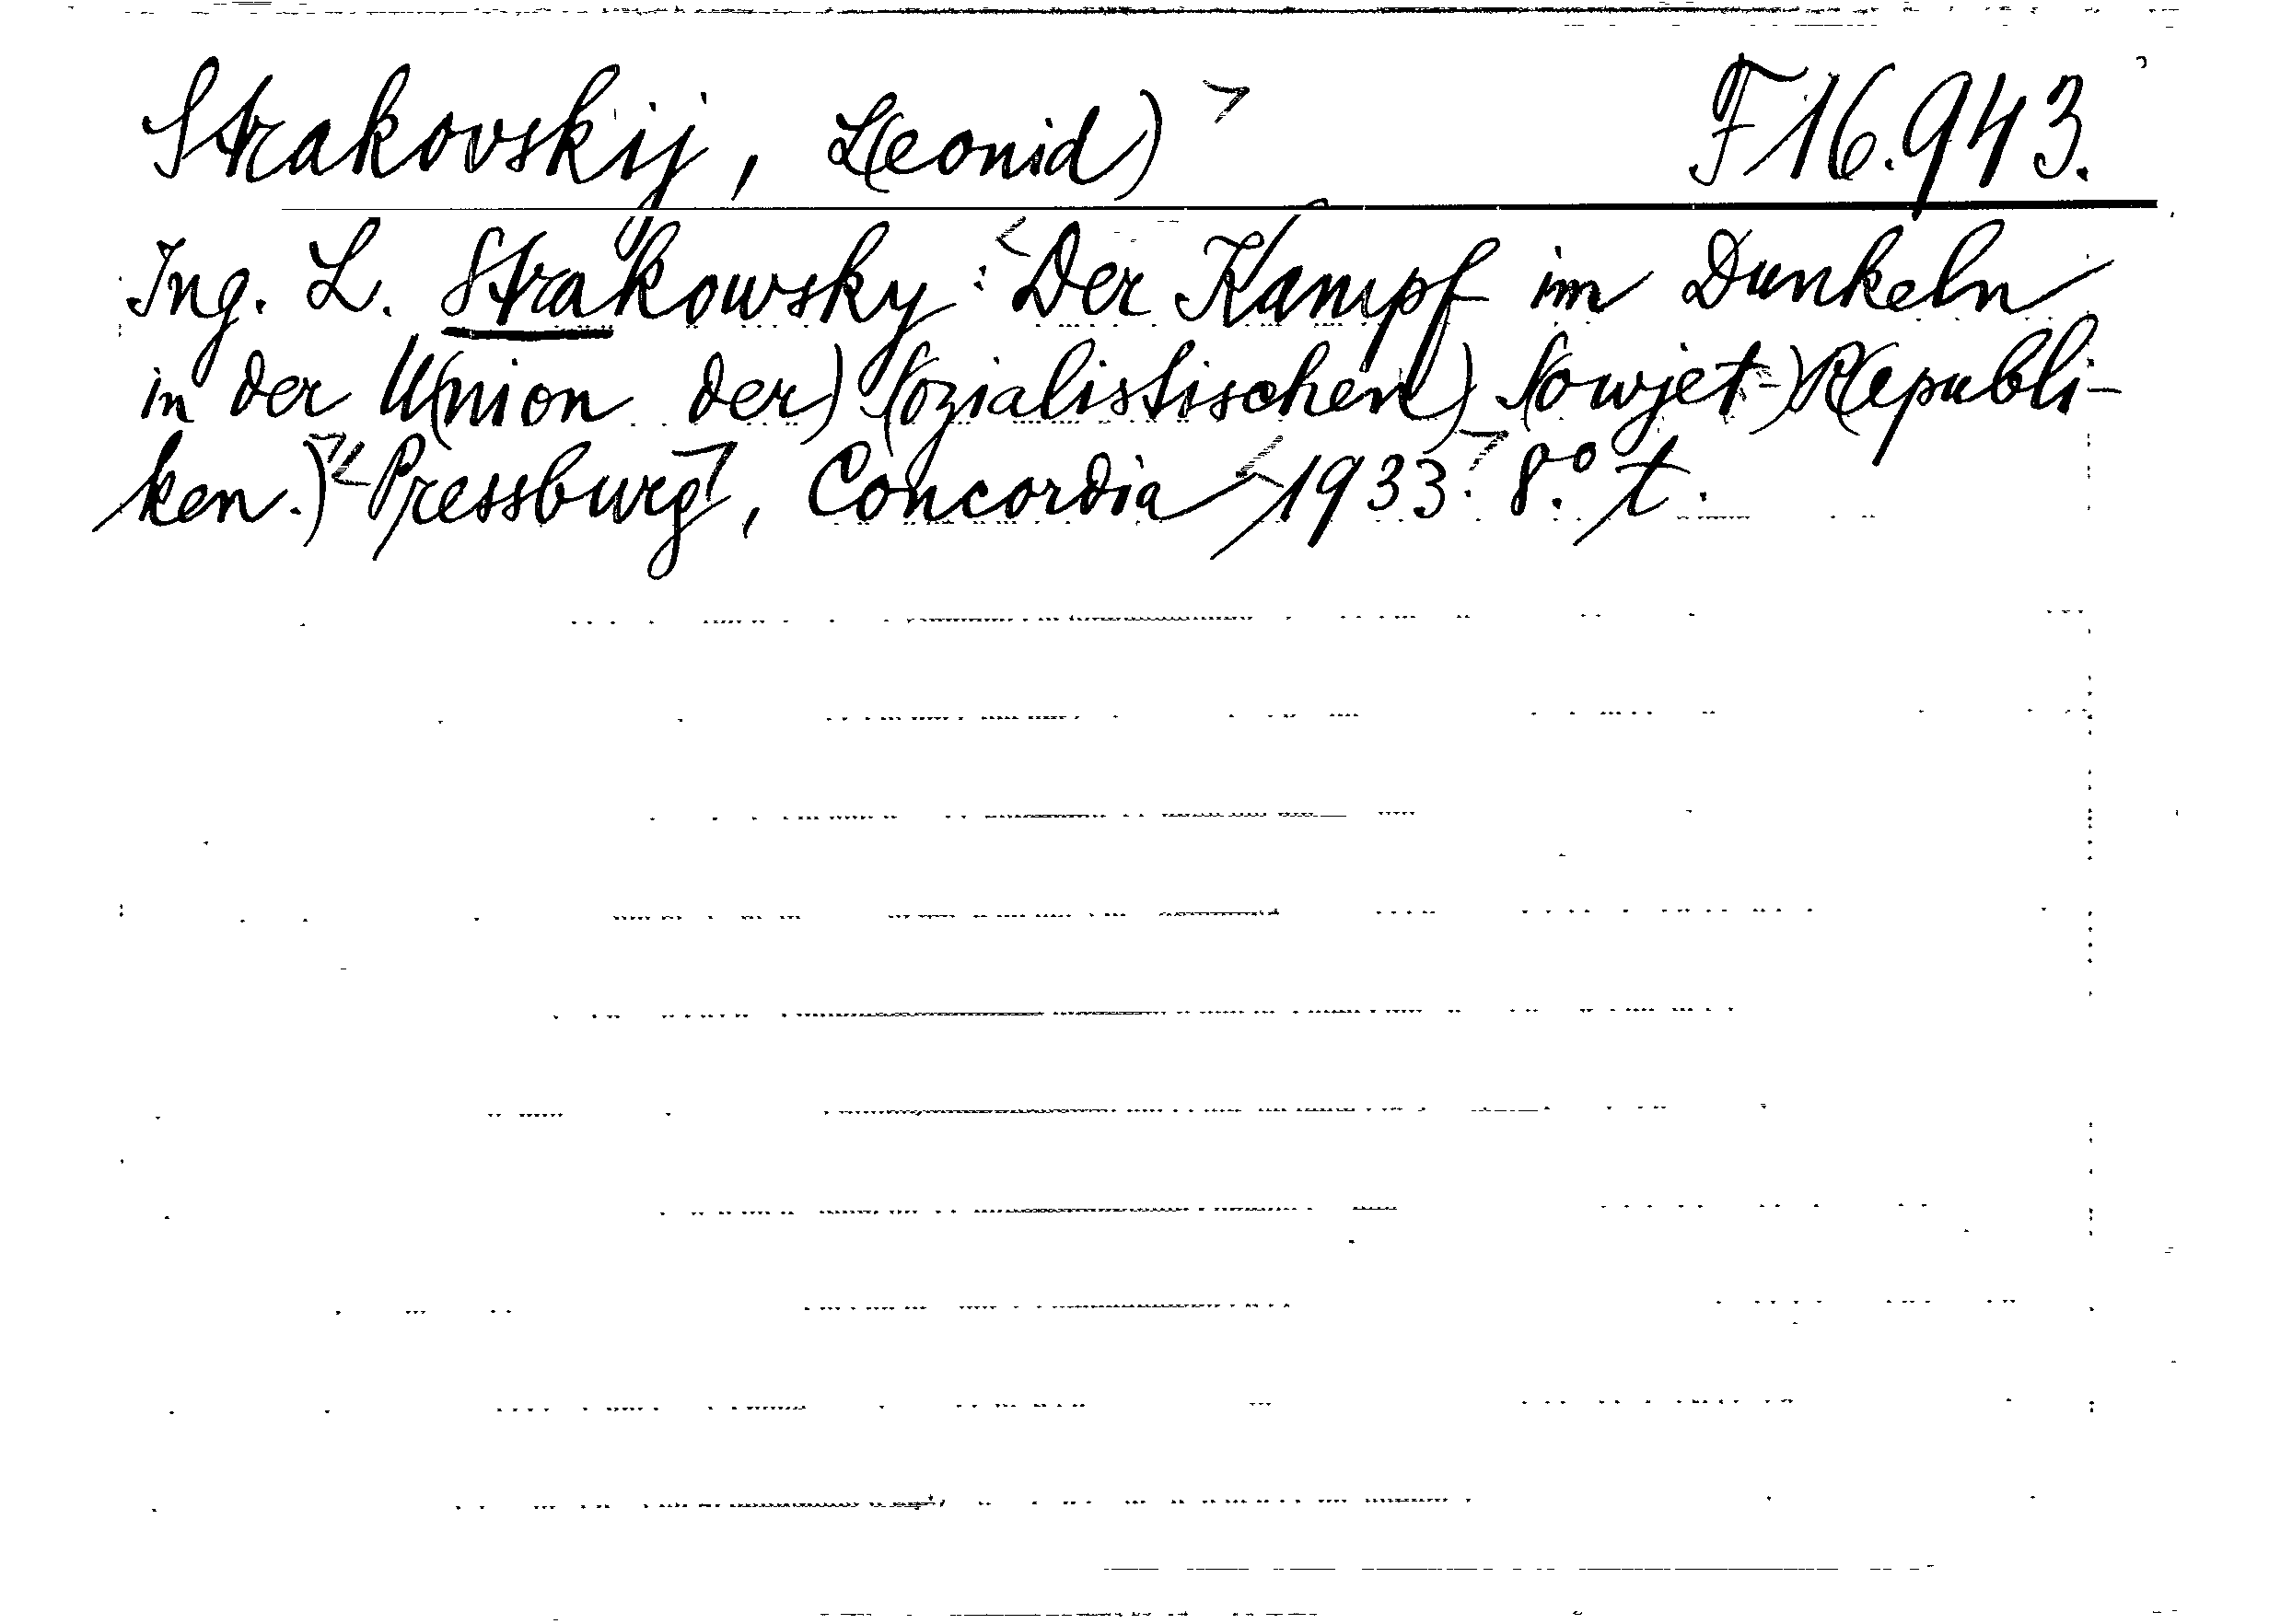 Strakovskij, L(eonid) F16.943.
Ing. L. Strakowsky: Der Kampf im Dunkeln
in der U(nion der) S(ozialistischen) S(owjet-)R(epubli-
ken.) Pressburg, Concordia 1933. 8.° t.